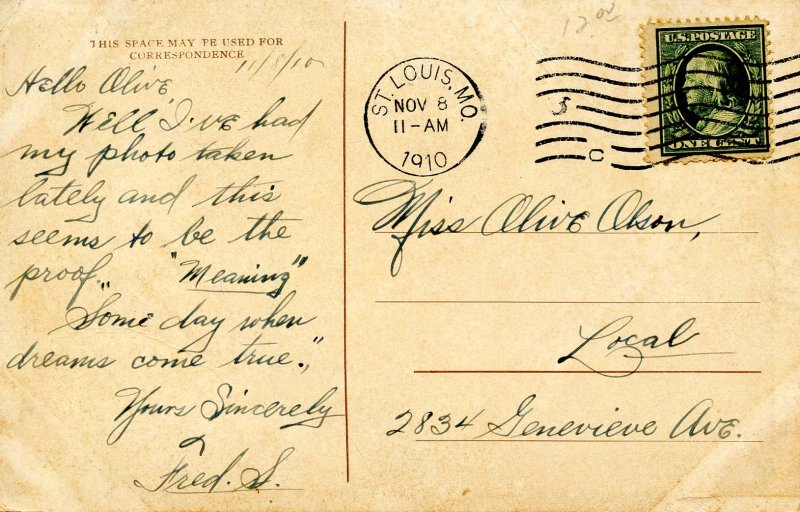 THIS SPACE MAY BE USED FOR
CORRESPONDENCE
11/8/10
Hello Olive,
Well I've had
my photo taken
lately and this
seems to be the
proof. "Meaning"
"Some day when
dreams come true."
Yours Sincerely
Fred. S.
12.00
ST. LOUIS, MO.
NOV 8
11-AM
1910
5
C
U.S. POSTAGE
ONE CENT
Miss Olive Olson,
Local
2834 Genevieve Ave.